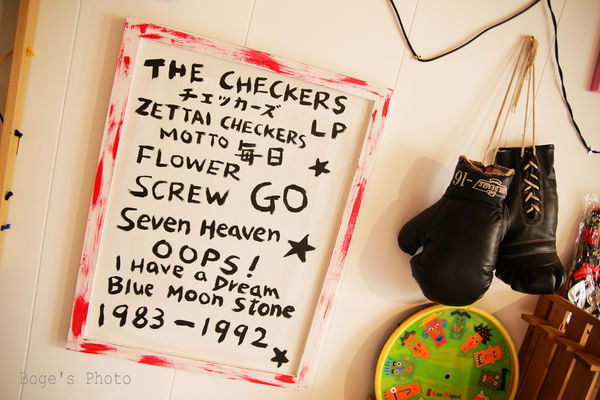 THE CHECKERS
チェッカーズ LP
ZETTAI CHECKERS
MOTTO 毎日
FLOWER
SCREW GO
Seven Heaven
OOPS!
I Have a Dream
Blue Moon Stone
1983-1992
Boge's Photo